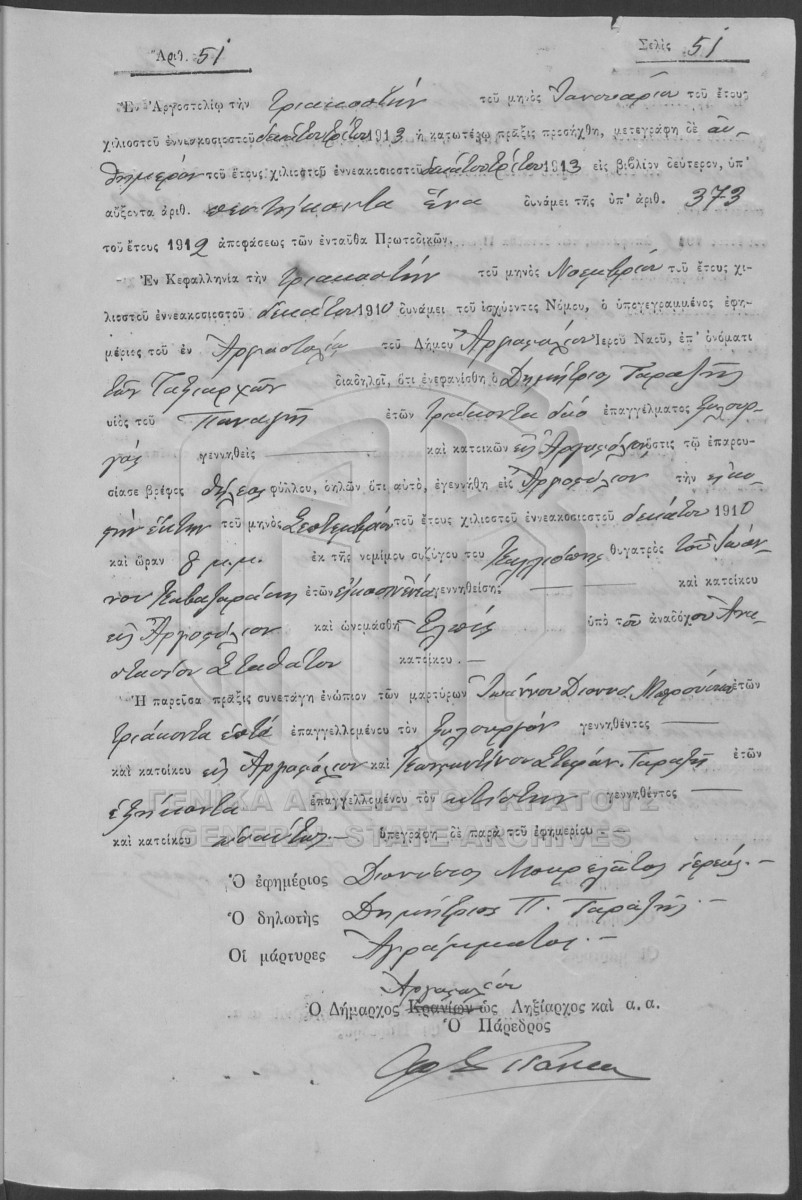 Ἀριθ. 51
Σελὶς 51
Ἐν Ἀργοστολίῳ τὴν τριακοστήν τοῦ μηνὸς Ἰανουαρίου τοῦ ἔτους
χιλιοστοῦ ἐννεακοσιοστοῦ δεκάτου τρίτου 1913 ἡ κατωτέρω πρᾶξις προσήχθη, μετεγράφη δὲ αὐ-
θημερὸν τοῦ ἔτους χιλιοστοῦ ἐννεακοσιοστοῦ δεκάτου τρίτου 1913 εἰς βιβλίον δεύτερον, ὑπ'
αὔξοντα ἀριθ. πεντήκοντα ἕνα δυνάμει τῆς ὑπ' ἀριθ. 373
τοῦ ἔτους 1912 ἀποφάσεως τῶν ἐνταῦθα Πρωτοδικῶν.
Ἐν Κεφαλληνίᾳ τὴν τριακοστήν τοῦ μηνὸς Νοεμβρίου τοῦ ἔτους χι-
λιοστοῦ ἐννεακοσιοστοῦ δεκάτου 1910 δυνάμει τοῦ ἰσχύοντος Νόμου, ὁ ὑπογεγραμμένος ἐφη-
μέριος τοῦ ἐν Ἀργοστολίῳ τοῦ Δήμου Ἀργοστολίου Ἱεροῦ Ναοῦ, ἐπ' ὀνόματι
τῶν Ταξιαρχῶν διαδηλοῖ, ὅτι ἐνεφανίσθη ὁ Δημήτριος Ταραζῆς
υἱὸς τοῦ Παναγῆ ἐτῶν τριάκοντα δύο ἐπαγγέλματος ξυλουρ-
γὸς γεννηθεὶς — καὶ κατοικῶν εἰς Ἀργοστόλιον ὅστις τῷ ἐπαρου-
σίασε βρέφος θήλεος φύλλου, δηλῶν ὅτι αὐτό, ἐγεννήθη εἰς Ἀργοστόλιον τὴν εἰκο-
στὴν ἕκτην τοῦ μηνὸς Σεπτεμβρίου τοῦ ἔτους χιλιοστοῦ ἐννεακοσιοστοῦ δεκάτου 1910
καὶ ὥραν 8 μ.μ. ἐκ τῆς νομίμου συζύγου του Καλλιόπης θυγατρὸς τοῦ Ἰωάν-
νου ἐτῶν εἰκοσιεννέα γεννηθείσης — καὶ κατοίκου
εἰς Ἀργοστόλιον καὶ ὠνομάσθη Ἐλπίς ὑπὸ τοῦ ἀναδόχου Ἀνα-
στασίου Σταθάτου κατοίκου. —
Ἡ παροῦσα πρᾶξις συνετάγη ἐνώπιον τῶν μαρτύρων Ἰωάννου Διονυσ. ἐτῶν
τριάκοντα ἑπτά ἐπαγγελλομένου τὸν ξυλουργόν γεννηθέντος —
καὶ κατοίκου εἰς Ἀργοστόλιον καὶ Κωνσταντίνου Στεφάν. Ταραζῆ ἐτῶν
ἑξήκοντα ἐπαγγελλομένου τὸν κτίστην γεννηθέντος —
καὶ κατοίκου ὡσαύτως — ὑπεγράφη δὲ παρὰ τοῦ ἐφημερίου - —
Ὁ ἐφημέριος Διονύσιος Μουρελᾶτος ἱερεύς. —
Ὁ δηλωτὴς Δημήτριος Π. Ταραζῆς. —
Οἱ μάρτυρες Ἀγράμματοι. —
Ἀργοστολίου
Ὁ Δήμαρχος Κρανίων ὡς Ληξίαρχος καὶ α. α.
Ὁ Πάρεδρος
ΓΕΝΙΚΑ ΑΡΧΕΙΑ ΤΟΥ ΚΡΑΤΟΥΣ
GENERAL STATE ARCHIVES